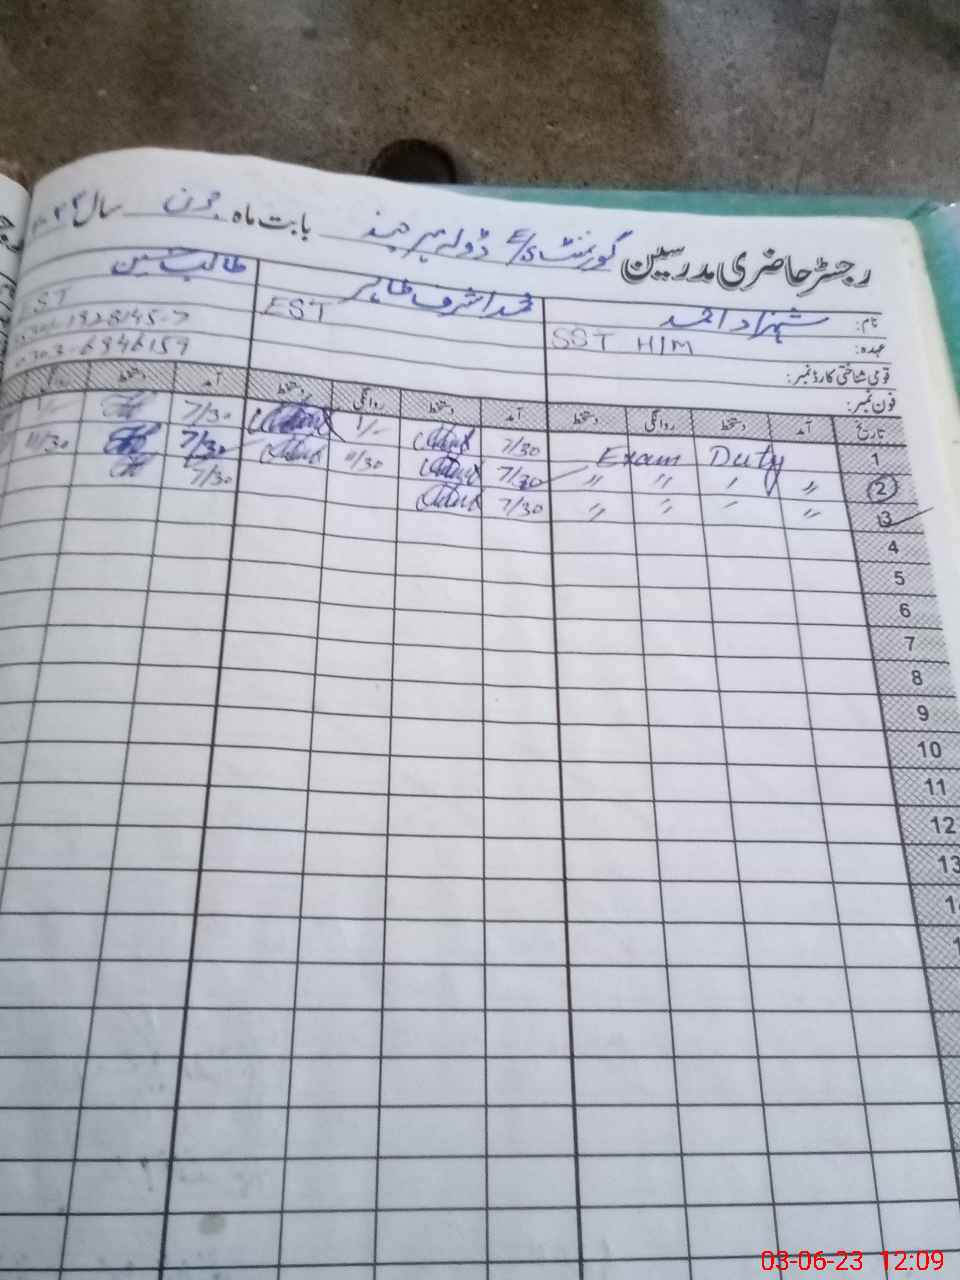 رجسٹر حاضری مدرسین گورنمنٹ E/S ڈولہ بابت ماہ جون سال
نام: شہزاد احمد محمد اشرف طاہر طالب حسین
عہدہ: SST H/M EST EST
قومی شناختی کارڈ نمبر:
فون نمبر: 6846159
تاریخ آمد دستخط روانگی دستخط آمد دستخط روانگی دستخط آمد دستخط
1 Exam Duty 7/30 1/- 7/30 1/-
2 〃 〃 〃 〃 7/30 11/30 7/30 11/30
3 〃 〃 〃 〃 7/30 7/30
4
5
6
7
8
9
10
11
12
13
03-06-23 12:09